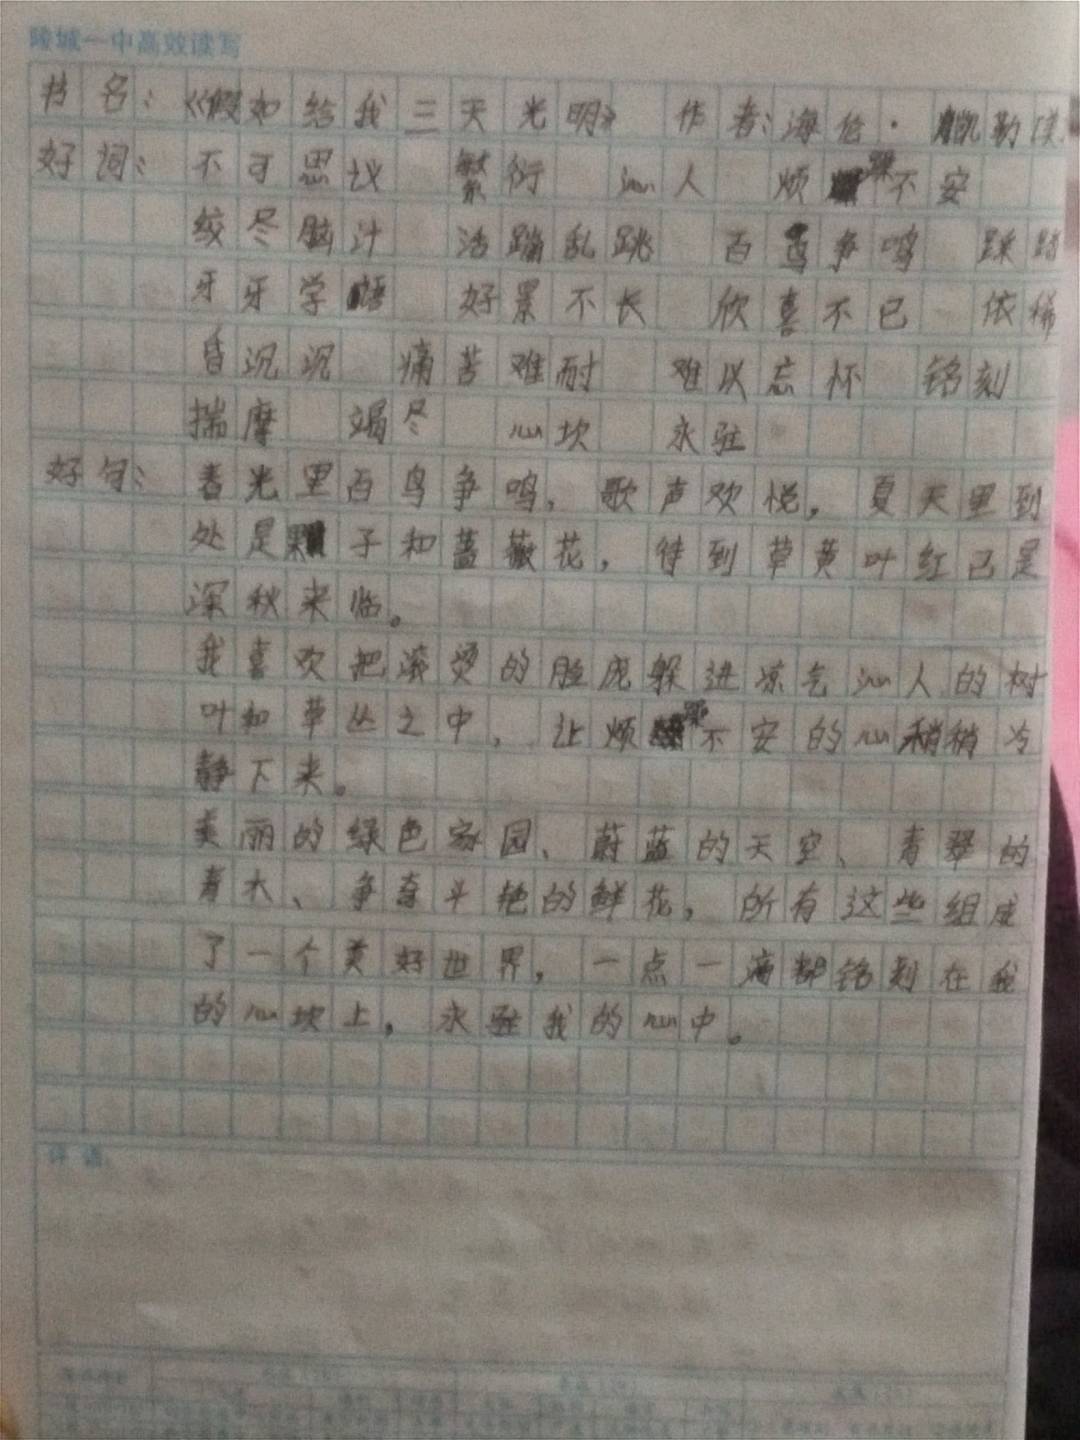 陵城一中高效读写
书名：《假如给我三天光明》 作者：海伦·凯勒[美]
好词：不可思议 繁衍 沁人 烦躁不安
绞尽脑汁 活蹦乱跳 百鸟争鸣 踩踏
牙牙学语 好景不长 欣喜不已 依稀
昏沉沉 痛苦难耐 难以忘怀 铭刻
揣摩 竭尽 心坎 永驻
好句：春光里百鸟争鸣，歌声欢悦，夏天里到
处是果子和蔷薇花，待到草黄叶红已是
深秋来临。
我喜欢把滚烫的脸庞躲进凉气沁人的树
叶和草丛之中，让烦躁不安的心稍稍冷
静下来。
美丽的绿色家园、蔚蓝的天空、青翠的
青木、争奇斗艳的鲜花，所有这些组成
了一个美好世界，一点一滴都铭刻在我
的心坎上，永驻我的心中。
评语